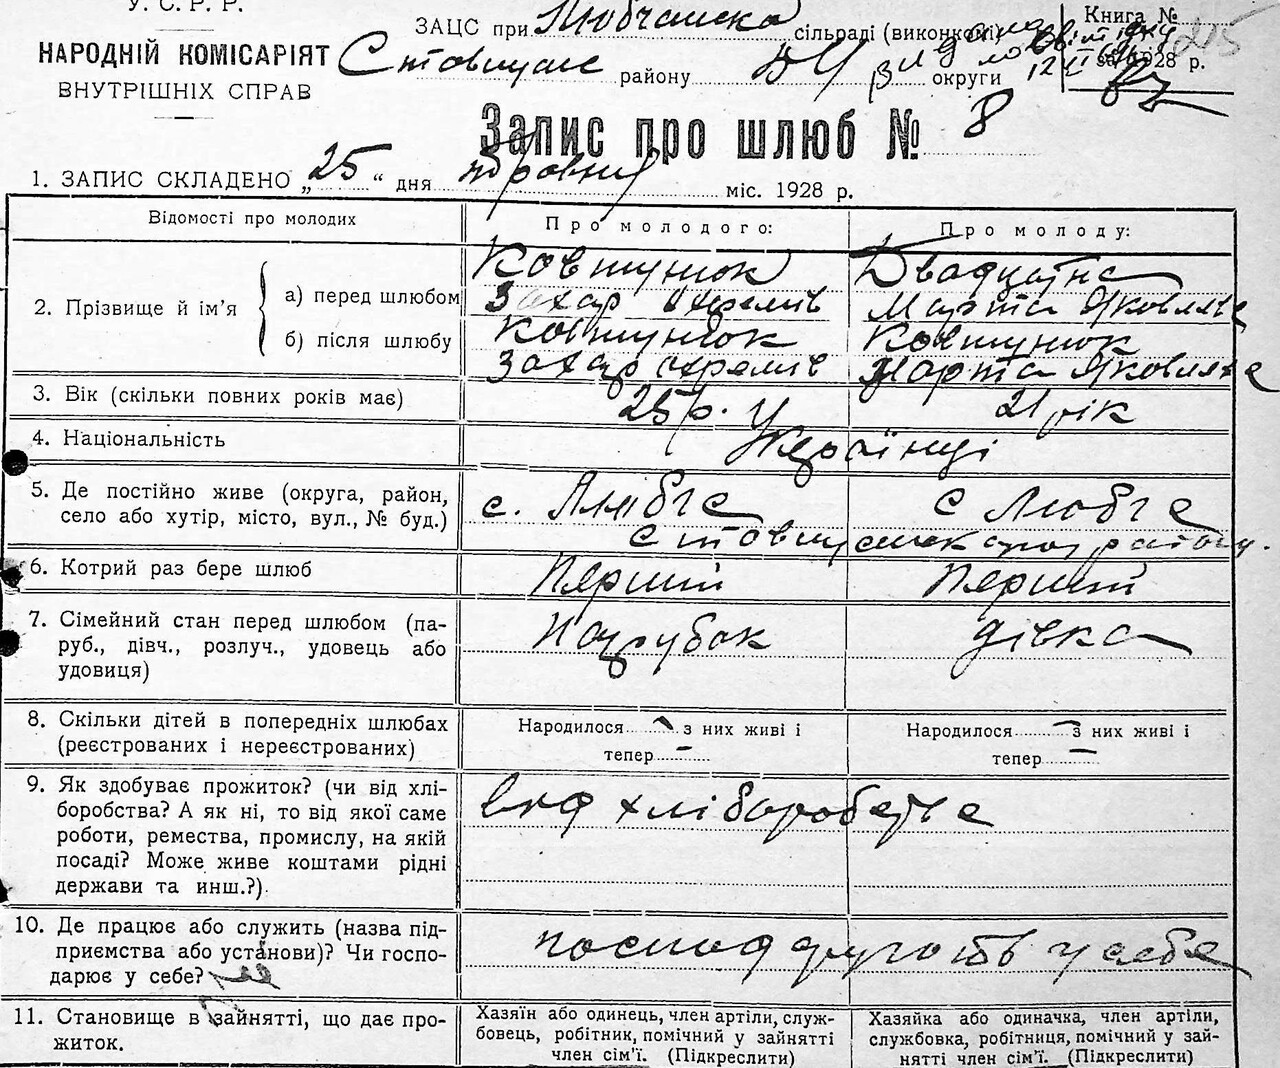 У. С. Р. Р.
НАРОДНІЙ КОМІСАРІЯТ
ВНУТРІШНІХ СПРАВ
ЗАЦС при Любчанска сільраді (виконкомі)
Ставищанс району БЦ округи
Книга №
за 1928 р.
Запис про шлюб № 8
1. ЗАПИС СКЛАДЕНО „25“ дня травня міс. 1928 р.
Відомості про молодих
Про молодого:
Про молоду:
2. Прізвище й ім’я
а) перед шлюбом
Ковтунюк
Захар Охремів
Двадцятна
Марта Яковлевe
б) після шлюбу
Ковтунюк
Захар Охремів
Ковтунюк
Марта Яковлевe
3. Вік (скільки повних років має)
25 р.
21 рік
4. Національність
Українці
5. Де постійно живе (округа, район,
село або хутір, місто, вул., № буд.)
с. Любча
с Любча
Ставищанскаго району.
6. Котрий раз бере шлюб
Перший
Перший
7. Сімейний стан перед шлюбом (па-
руб., дівч., розлуч., удовець або
удовиця)
Парубок
дівка
8. Скільки дітей в попередніх шлюбах
(реєстрованих і нереєстрованих)
Народилося - з них живі і
тепер -
Народилося - з них живі і
тепер -
9. Як здобуває прожиток? (чи від хлі-
боробства? А як ні, то від якої саме
роботи, ремества, промислу, на якій
посаді? Може живе коштами рідні
держави та инш.?)
від хліборобства
10. Де працює або служить (назва під-
приємства або установи)? Чи госпо-
дарює у себе?
у себе
11. Становище в зайнятті, що дає про-
житок.
Хазяїн або одинець, член артіли, служ-
бовець, робітник, помічний у зайнятті
член сім’ї. (Підкреслити)
Хазяйка або одиначка, член артіли,
службовка, робітниця, помічний у зай-
нятті член сім’ї. (Підкреслити)